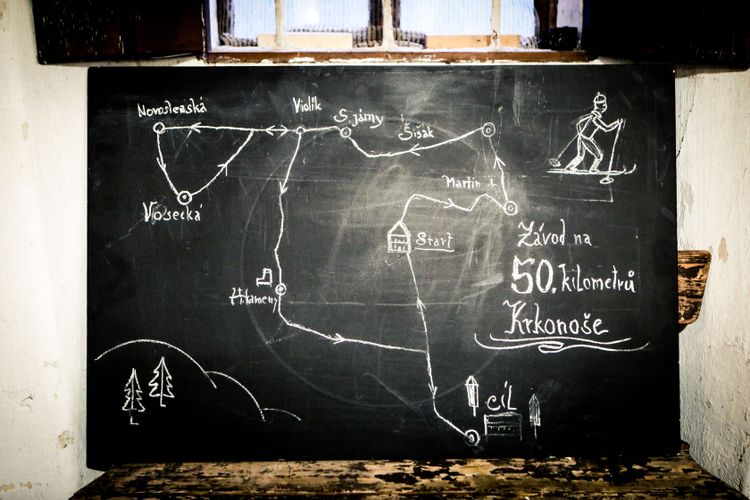 Novoslezská
Violík
S. jámy
Šišák
Martin. b.
Vosecká
Start
Závod na
50. kilometrů
Krkonoše
H. kameny
CÍL